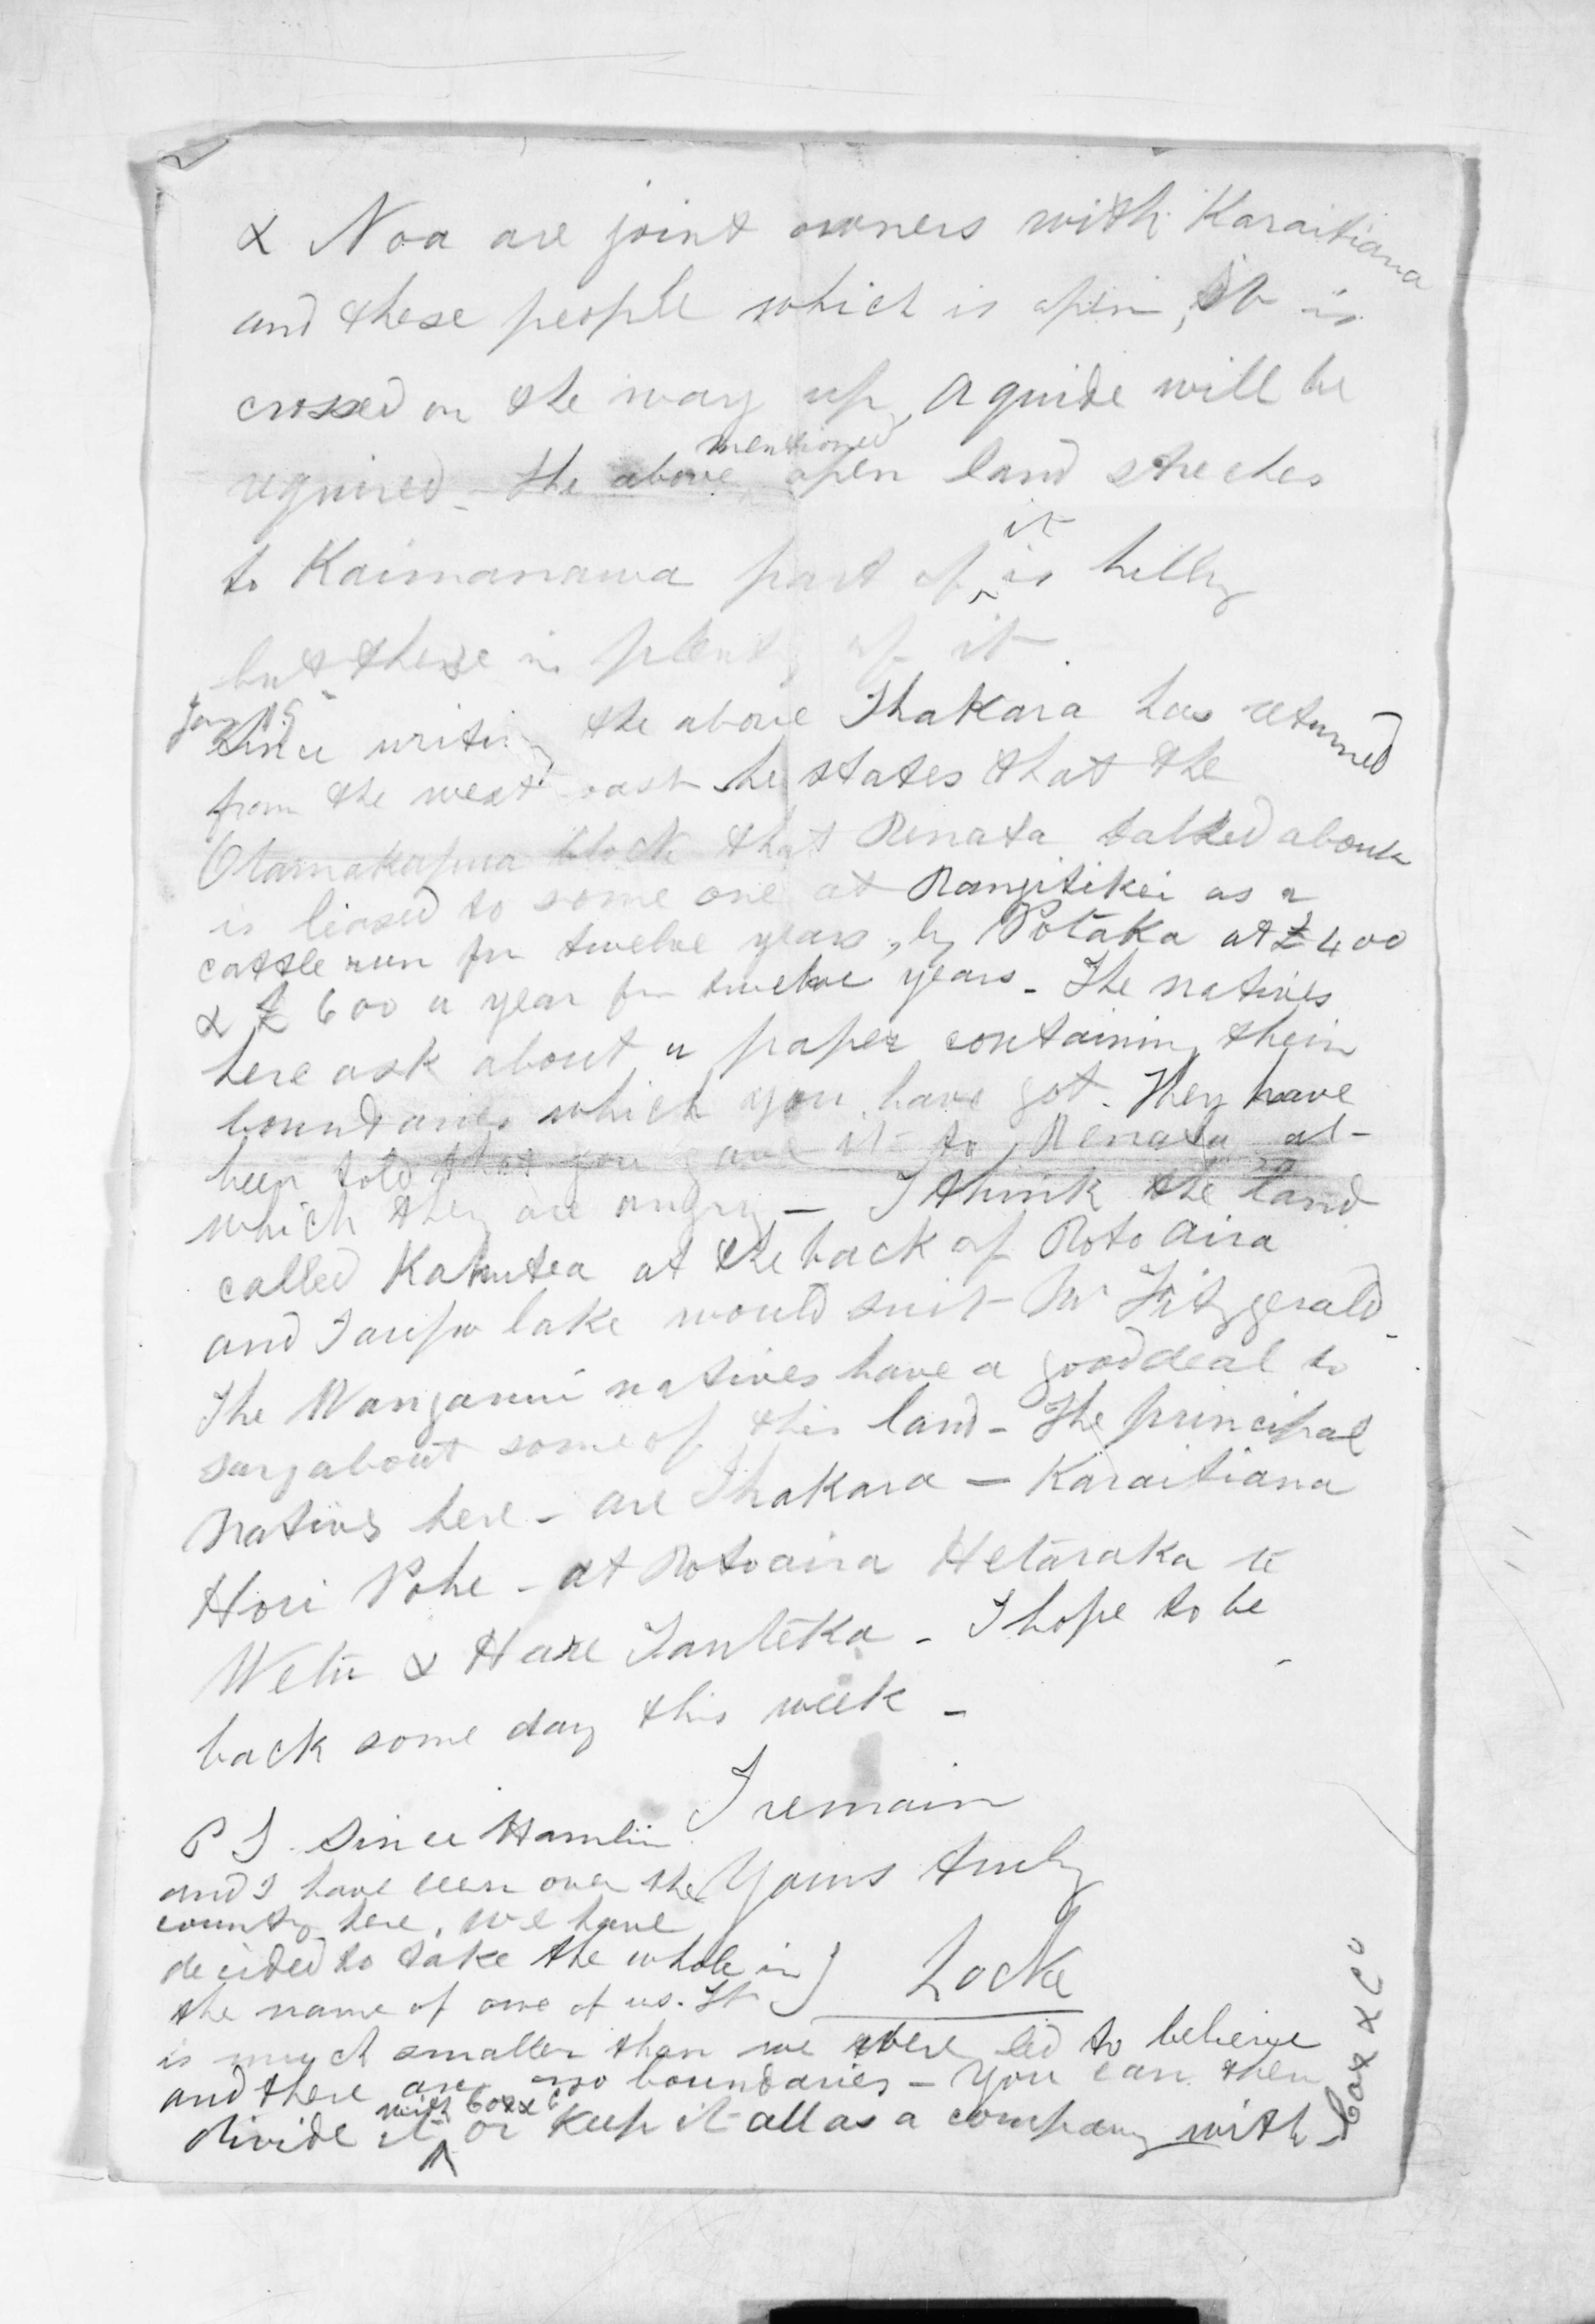 & Noa are joint owners with Karaitiana
and these people which is open, it is
crossed on the way up, a guide will be
required - the above mentioned open land streches
to Kaimanawa part of it is hilly
but there is plenty of it.
Jany 15
Since writing the above Ihakara has returned
from the west coast he states that the
Otamakapua block that Renata talked about
is leased to some one at Rangitikei as a
cattle run for twelve years, by Potaka at £400
& £600 a year for twelve years - The natives
here ask about a paper containing their
boundaries which you have got - They have
been told that you gave it to Renata at
which they are angry - I think the land
called Kahutea at the back of Roto Aira
and Taupo lake would suit Mr Fitzgerald -
The Wanganui natives have a good deal to
say about some of this land - The principal
natives here - are Ihakara - Karaitiana
Hori Pohe - at Rotoaira Hetaraka te
Wetu & Hare Tauteka - I hope to be
back some day this week -
I remain
Yours truly
S Locke
P S. Since Hamlin
and I have been over the
country here, we have
decided to take the whole in
the name of one of us. It
is much smaller than we were led to believe
and there are no boundaries - you can then
divide it with Cox & C or keep it all as a company with
Cox & Co